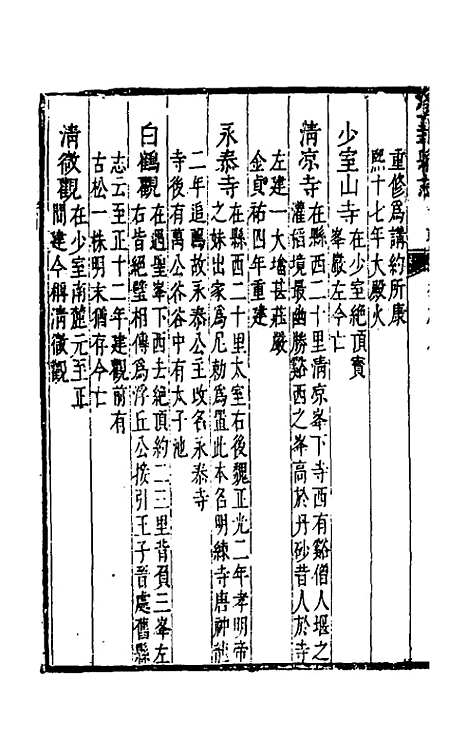 重修爲講約所康
熙十七年大殿火
少室山寺在少室絶頂寶
峯嚴左今亡
清凉寺在縣西二十里清凉峯下寺西有谿僧人堰之
灌稻境最幽勝谿西之峯高於丹砂昔人於寺
左建一大墖甚莊嚴
金貞祐四年重建
永泰寺在縣西二十里太室右後魏正光二年孝明帝
之妹出家爲尼勅爲置此本名明練寺唐神龍
二年追爲故永泰公主改名永泰寺
寺後有萬公谷谷中有太子池
白鶴觀在遇聖峯下西去絶頂約二三里背負三峯左
右皆絶壁相傳爲浮丘公接引王子晉處舊縣
志云至正十二年建觀前有
古松一株明末猶存今亡
清微觀在少室南麓元至正
間建今稱清微觀